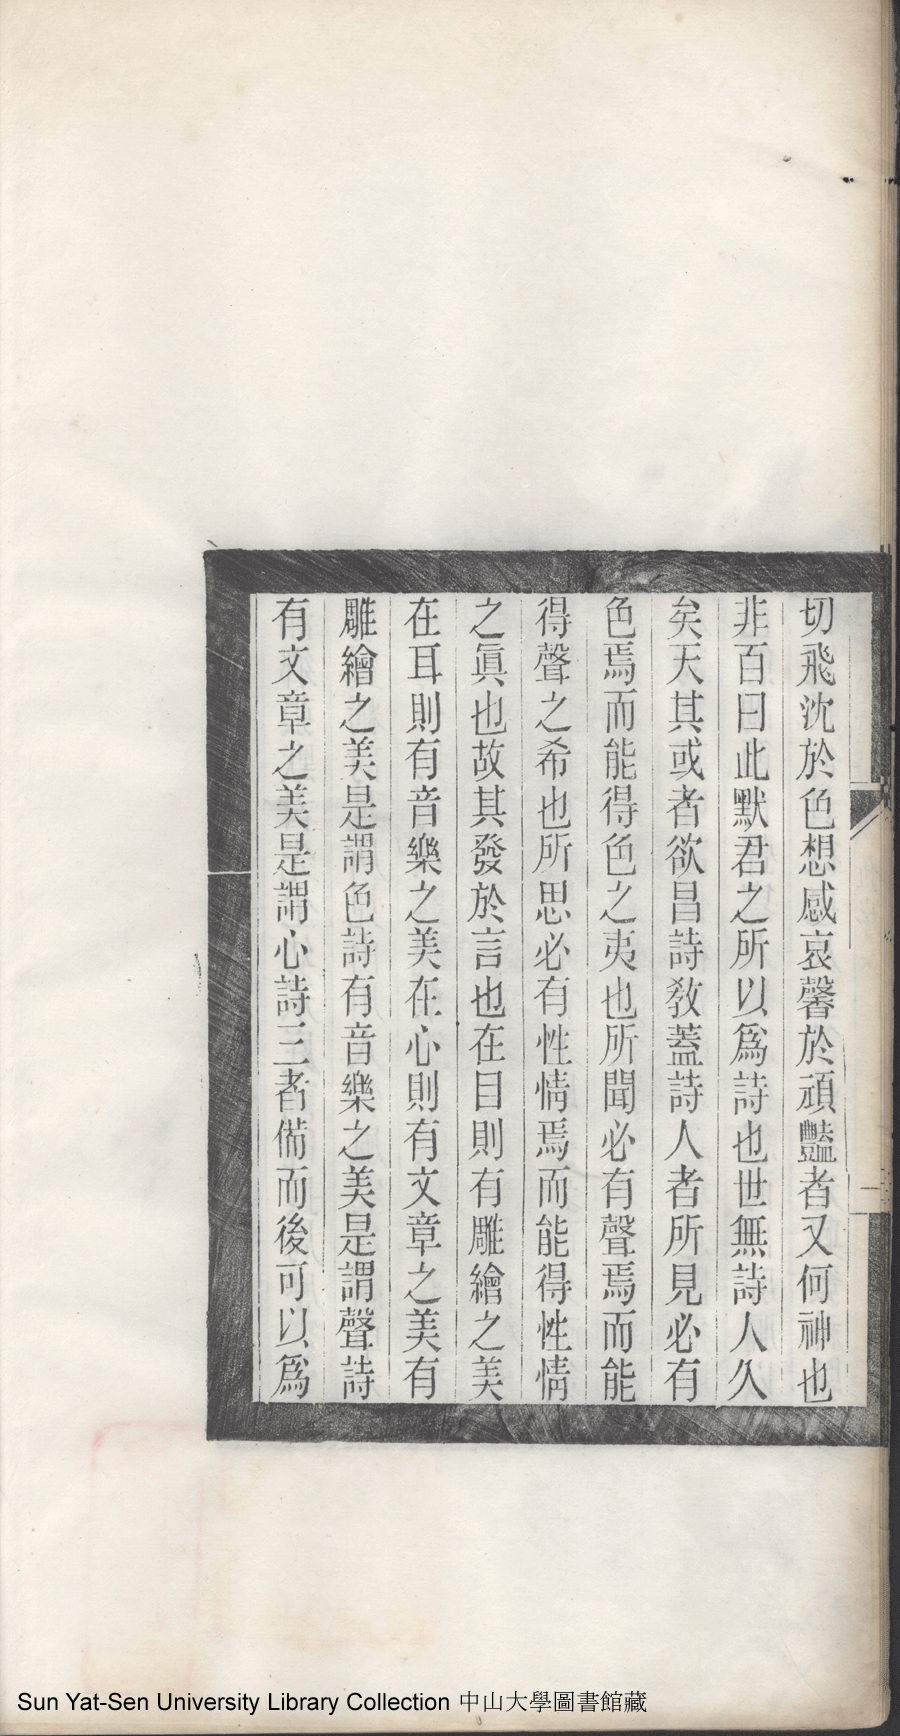 切飛沈於色想感哀馨於頑豔者又何神也
非百曰此默君之所以爲詩也世無詩人久
矣天其或者欲昌詩敎蓋詩人者所見必有
色焉而能得色之夷也所聞必有聲焉而能
得聲之希也所思必有性情焉而能得性情
之眞也故其發於言也在目則有雕繪之美
在耳則有音樂之美在心則有文章之美有
雕繪之美是謂色詩有音樂之美是謂聲詩
有文章之美是謂心詩三者備而後可以爲
Sun Yat-Sen University Library Collection 中山大學圖書館藏